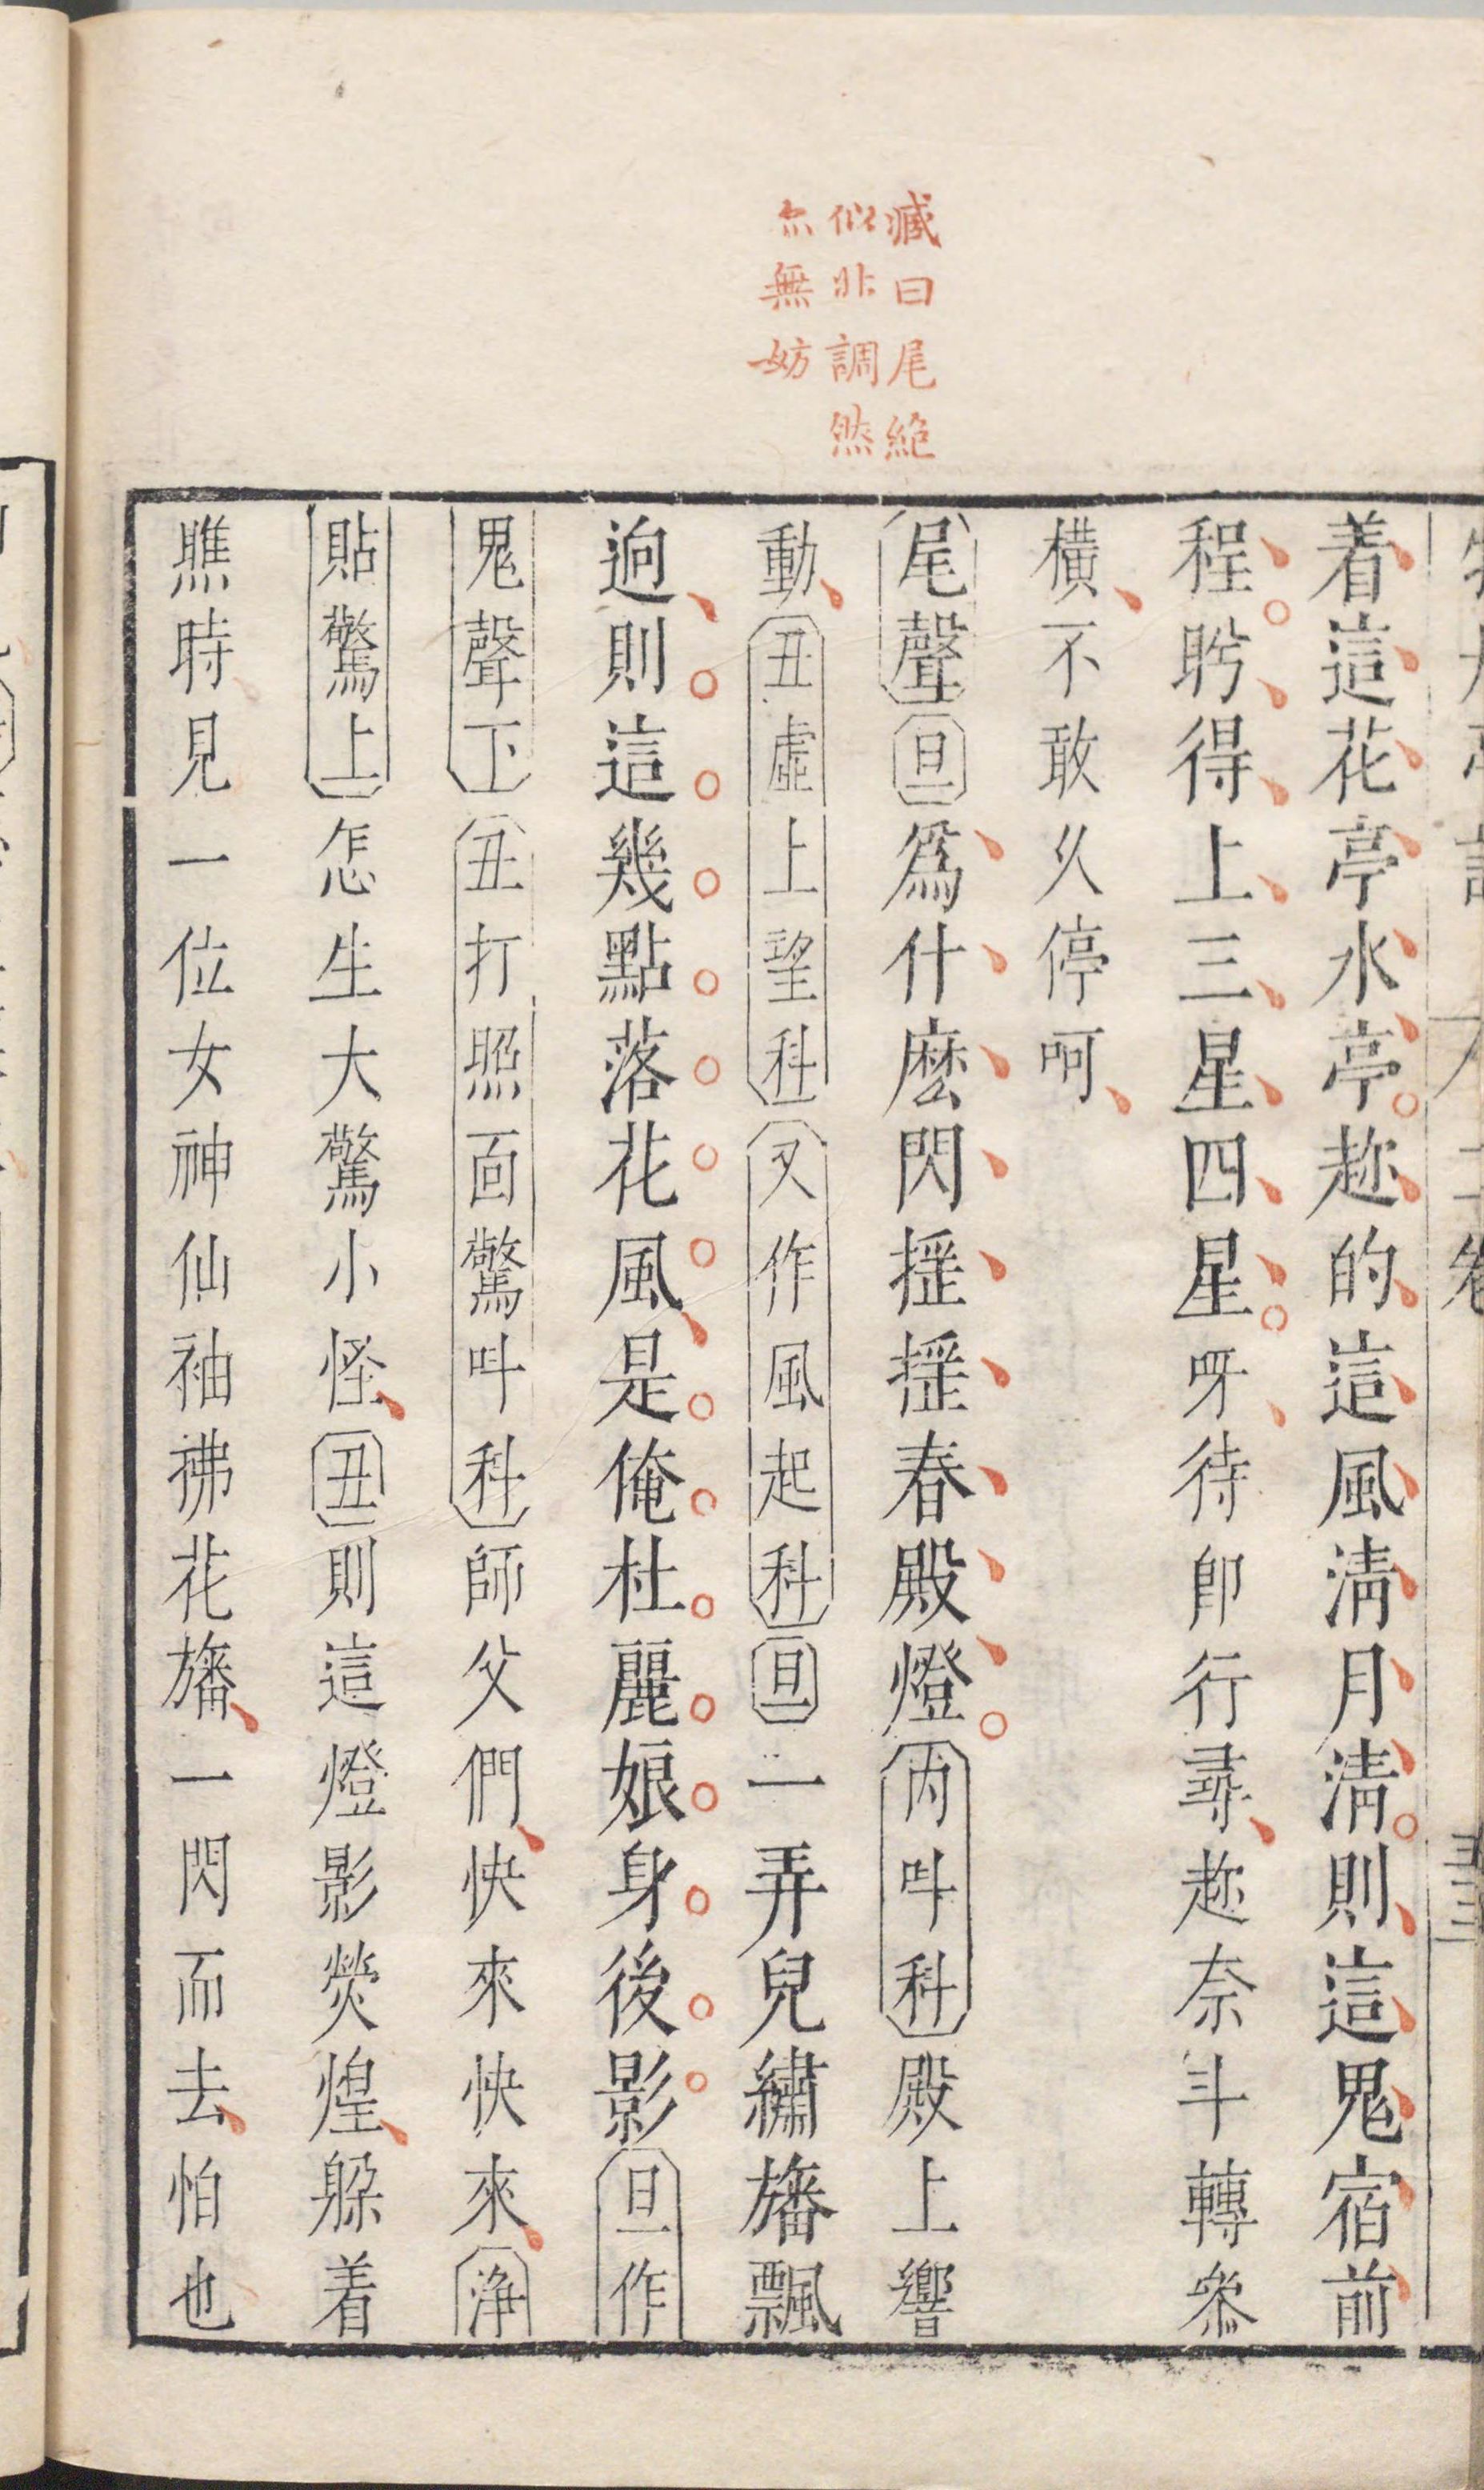 着這花亭水亭趂的這風淸月淸則這鬼宿前
程盻得上三星四星呀待卽行尋趂奈斗轉叅
橫不敢久停呵
尾聲旦爲什麽閃搖搖春殿燈內呌科殿上響
動丑虛上望科又作風起科旦一弄兒繡旛飄
逈則這幾點落花風是俺杜麗娘身後影旦作
鬼聲下丑打照面驚呌科師父們快來快來淨
貼驚上怎生大驚小怪丑則這燈影熒煌躱着
瞧時見一位女神仙袖拂花旛一閃而去怕也
臧曰尾絶
似非調然
亦無妨